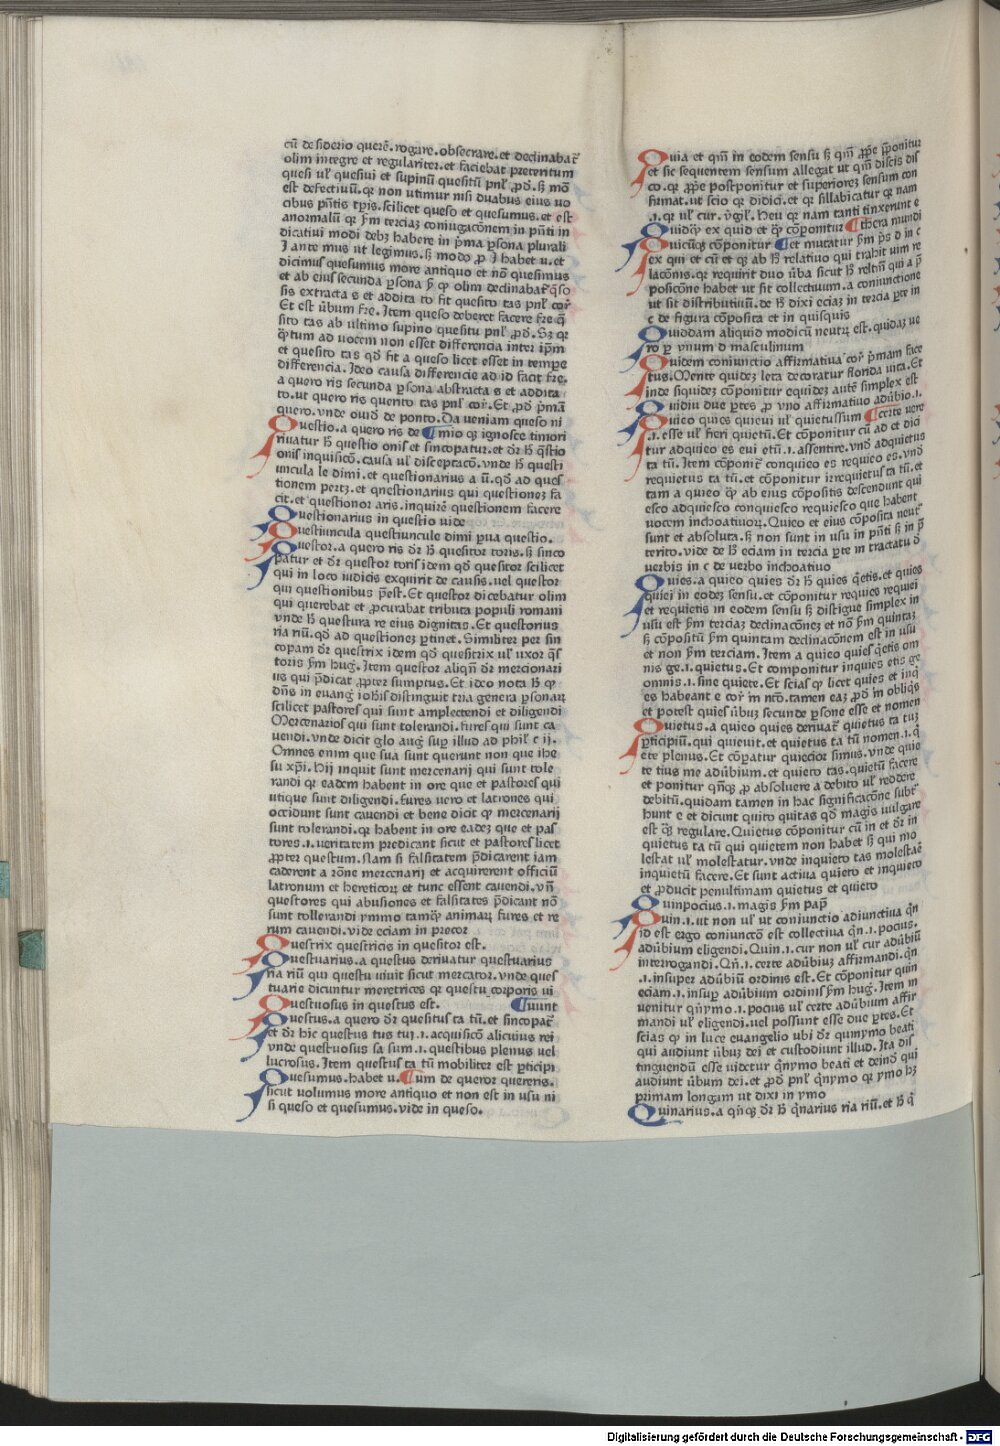 cū desiderio querē.rogare.obsecrare.et declinabat᷑
olim integre et regulariter.et faciebat preteritum
quesi ul̓ quesiui et supinū quesitū pnl̓ ꝓd.sꝫ mō
est defectiuū.qꝛ non utimur nisi duabus eius uo
cibus pn̄tis tꝑis.scilicet queso et quesumus.et est
anormalū qꝛ s̄m terciaꝫ coniugacōnem in pn̄ti in
dicatiui modi debꝫ habere in pͥma ꝑsona plurali
I ante mus ut legimus.sꝫ modo ꝓ I habet u.et
dicimus quesumus more antiquo et nō quesimus
et ab eius secunda ꝑsona
sis extracta s et addita to fit quesito tas pnl̓ cor᷑
Et est ūbum fr̄e.Item queso deberet facere fr̄e
sito tas ab ultimo supino quesitu pnl̓ ꝓd.Sꝫ qꝛ
ꝙtum ad uocem non esset differencia inter ip̄m
et quesito tas qd̄ fit a queso licet esset in temꝑe
differencia.Ideo causa differencie ad id facit fr̄e.
a quero ris secunda ꝑsona abstracta s et addita
to.ut quero ris querito tas pnl̓ cor᷑.Et ꝓd pͥmā
quero.vnde ouid de ponto.Da veniam queso ni
Questio.a quero ris de ¶mio qꝫ ignosce timori
riuatur ħ questio onis et sincopatur.et dr̄ ħ q̄stio
onis inquisicō.causa ul̓ disceptacō.vnde ħ questi
uncula le dimi.et questionarius a ū.qd̄ ad ques
tionem pertꝫ.et questionarius qui questiones fa
cit.et questionor aris.inquirē questionem facere
Questionarius in questio vide
Questiuncula questiuncule dimi ꝑua questio.
Questor.a quero ris dr̄ ħ quesitor toris.sꝫ sinco
patur et dr̄ questor toris idem qd̄ quesitor scilicet
qui in loco iudicis exquirit de causis.uel questor
qui questionibus p̄est.Et questor dicebatur olim
qui querebat et ꝓcurabat tributa populi romani
vnde ħ questura re eius dignitas.Et questorius
ria riū.qd̄ ad questoneꝫ ꝑtinet.Similiter per sin
copam dr̄ questrix idem qd̄ quesitrix ul̓ uxor q̄s
toris s̄m hug.Item questor aliqn̄ dr̄ mercionari
us qui p̄dicat ꝓpter sumptus.Et ideo nota ħ ꝙ
dn̄s in euang̓ iohīs distinguit tria genera ꝑsonaꝝ
scilicet pastores qui sunt amplectendi et diligendi
Mercenarios qui sunt tolerandi.fures qui sunt ca
uendi.vnde dicit glo aug̓ suꝑ illud ad phil̓ c ij.
Omnes enim que sua sunt querunt non que ihe
su xp̄i.Hij inquit sunt mercenarij qui sunt tole
randi qꝛ eadem habent in ore que et pastores qui
utique sunt diligendi.fures uero et latrones qui
occidunt sunt cauendi et bene dicit ꝙ mercenarij
sunt tolerandi.qꝛ habent in ore eadeꝫ que et pas
tores.i.ueritatem predicant sicut et pastores licet
ꝓpter questum.Nam si falsitatem p̄dicarent iam
caderent a rōne mercenarij et acquirerent officiū
latronum et hereticoꝝ et tunc essent cauendi.vn̄
questores qui abusiones et falsitates p̄dicant nō
sunt tollerandi ymmo tamqꝫ animaꝝ fures et re
rum cauendi.vide eciam in precor
Questrix questricis in quesitor est.
Questuarius.a questus deriuatur questuarius
ria riū qui questu uiuit sicut mercator.vnde ques
tuarie dicuntur meretrices qꝛ questu corporis ui
Questuosus in questus est. ¶uunt
Questus.a quero dr̄ quesitus ta tū.et sincopat᷑
et dr̄ hic questus tus tui.i.acquisicō alicuius rei
vnde questuosus sa sum.i.questibus plenus uel
lucrosus.Item questus ta tū mobiliter est ꝑticipi
Quesumus.habet u.¶um de queror quereris.
sicut uolumus more antiquo et non est in usu ni
si queso et quesumus.vide in queso.
Quia et qm̄ in eodem sensu sꝫ qm̄ ꝓpͥe p̄ponitur
et sic sequentem sensum allegat ut qm̄ discis dis
co.qꝛ ꝓpͥe postponitur et superioreꝫ sensum con
firmat.ut scio qꝛ didici.et qꝛ sillabicatur qꝛ nam
.i.qꝛ ul̓ cur.v̓gil̓.Heu qꝛ nam tanti tinxerunt e
Quidqꝫ ex quid et qꝫ cōponitur ¶thera mundi
Quicūqꝫ cōponitur ¶et mutatur s̄m p̓s d in c
ex qui et cū et qꝫ ab ħ relatiuo qui trahit uim re
lacōnis.qꝛ requirit duo ūba sicut ħ reltm̄ qui a p̄
posicōne habet ut fit collectiuum.a coniunctione
ut fit distributiuū.de ħ dixi eciaꝫ in tercia ꝑte in
c de figura cōposita et in quisquis
Quiddam aliquid modicū neutꝝ est.quidaꝫ ue
ro ꝑ ynum d masculinum
Quidem coniunctio affirmatiua cor᷑ pͥmam face
tus.Mente quideꝫ leta decoratur florida uita.Et
inde siquideꝫ cōponitur equideꝫ aut̄ simplex est
Quidiu due ꝑtes ꝓ vno affirmatiuo adūbio.i.
Quieo quies quieui ul̓ quietussum ¶certe uere
.i.esse ul̓ fieri quietū.Et cōponitur cū ad et dici
tur adquieo es eui etū.i.assentire.vnd̄ adquietus
ta tū.Item cōponit᷑ conquieo es requieo es.vnd̄
requietus ta tū.et cōponitur irrequietus ta tū.et
tam a quieo ꝙ ab eius cōpositis descendunt qui
esco adquiesco conquiesco requiesco que habent
uocem inchoatiuoꝝ.Quieo et eius cōposita neut᷑
sunt et absoluta.sꝫ non sunt in usu in pn̄ti sꝫ in p̄
terito.vide de ħ eciam in tercia ꝑte in tractatu d̄
uerbis in c de verbo inchoatiuo
Quies.a quieo quies dr̄ ħ quies q̄etis.et quies
quiei in eodeꝫ sensu.et cōponitur requies requiei
et requietis in eodem sensu sꝫ distigue simplex in
usu est s̄m terciaꝫ declinacōneꝫ et nō s̄m quintaꝫ
sꝫ cōpositū s̄m quintam declinacōnem est in usu
et non s̄m terciam.Item a quieo quies q̄etis om
nis ge.i.quietus.Et componitur inquies etis ge
omnis.i.sine quiete.Et scias ꝙ licet quies et inq̄
es habeant e cor᷑ in nt̄o.tamen eaꝫ ꝓd in obliq̄s
et potest quies ūbuꝫ secunde ꝑsone esse et nomen
Quietus.a quieo quies deriuat᷑ quietus ta tuꝫ
ꝑticipiū.qui quieuit.et quietus ta tū nomen.i.q̄
ete plenus.Et cōpatur quiecior simus.vnde quie
te tius me adūbium.et quieto tas.quietū facere
et ponitur qn̄qꝫ ꝓ absoluere a debito ul̓ reddere
debitū.quidam tamen in hac significacōne subt᷑
hunt e et dicunt quito quitas qd̄ magis uulgare
est qꝫ regulare.Quietus cōponitur cū in et dr̄ in
quietus ta tū qui quietem non habet sꝫ qui mo
lestat ul̓ molestatur.vnde inquieto tas molestar̄
inquietū facere.Et sunt actiua quieto et inquieto
et ꝓducit penultimam quietus et quieto
Quinpocius.i.magis s̄m pap̄
Quin.i.ut non ul̓ ut coniunctio adiunctiua qn̄
id est ergo coniunctō est collectiua qn̄.i.pocius.
adūbium eligendi.Quin.i.cur non ul̓ cur adūbiū
interrogandi.Qn̄.i.certe adūbiuꝫ affirmandi.qn̄
.i.insuper adūbiū ordinis est.Et cōponitur quin
eciam.i.insuꝑ adūbium ordinis s̄m hug.Item in
uenitur qn̄ymo.i.pocius ul̓ certe adūbium affir
mandi ul̓ eligendi.uel possunt esse due ꝑtes.Et
scias ꝙ in luce euangelio ubi dr̄ quinymo beati
qui audiunt ūbuꝫ dei et custodiunt illud.Ita dis
tinguendū esse uidetur qn̄ymo beati et deind̄ qui
audiunt ūbum dei.et ꝓd pnl̓ qn̄ymo qꝛ ymo hꝫ
primam longam ut dixi in ymo
Quinarius.a qn̄qꝫ dr̄ ħ qn̄arius ria riū.et ħ q̄
Digitalisierung gefördert durch die Deutsche Forschungsgemeinschaft - DFG